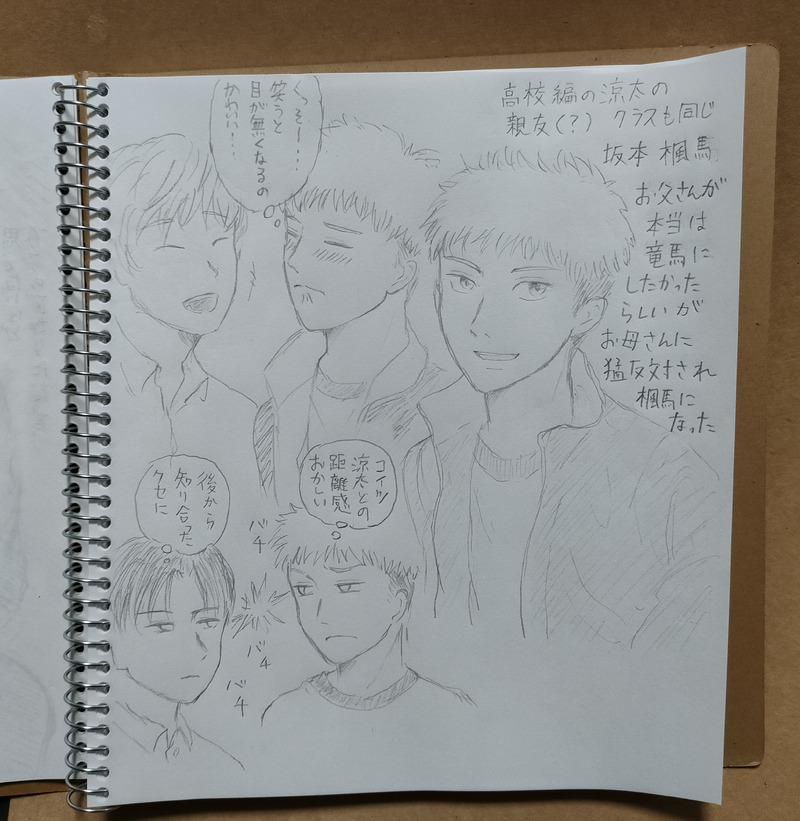 高校編の涼太の
親友(?) クラスも同じ
坂本 楓馬
お父さんが
本当は
竜馬に
したかった
らしいが
お母さんに
猛反対され
楓馬に
なった
くっそー…
笑うと
目が無くなるの
かわいい…
コイツ
涼太との
距離感
おかしい
後から
知り合った
クセに
バチ
バチ
バチ